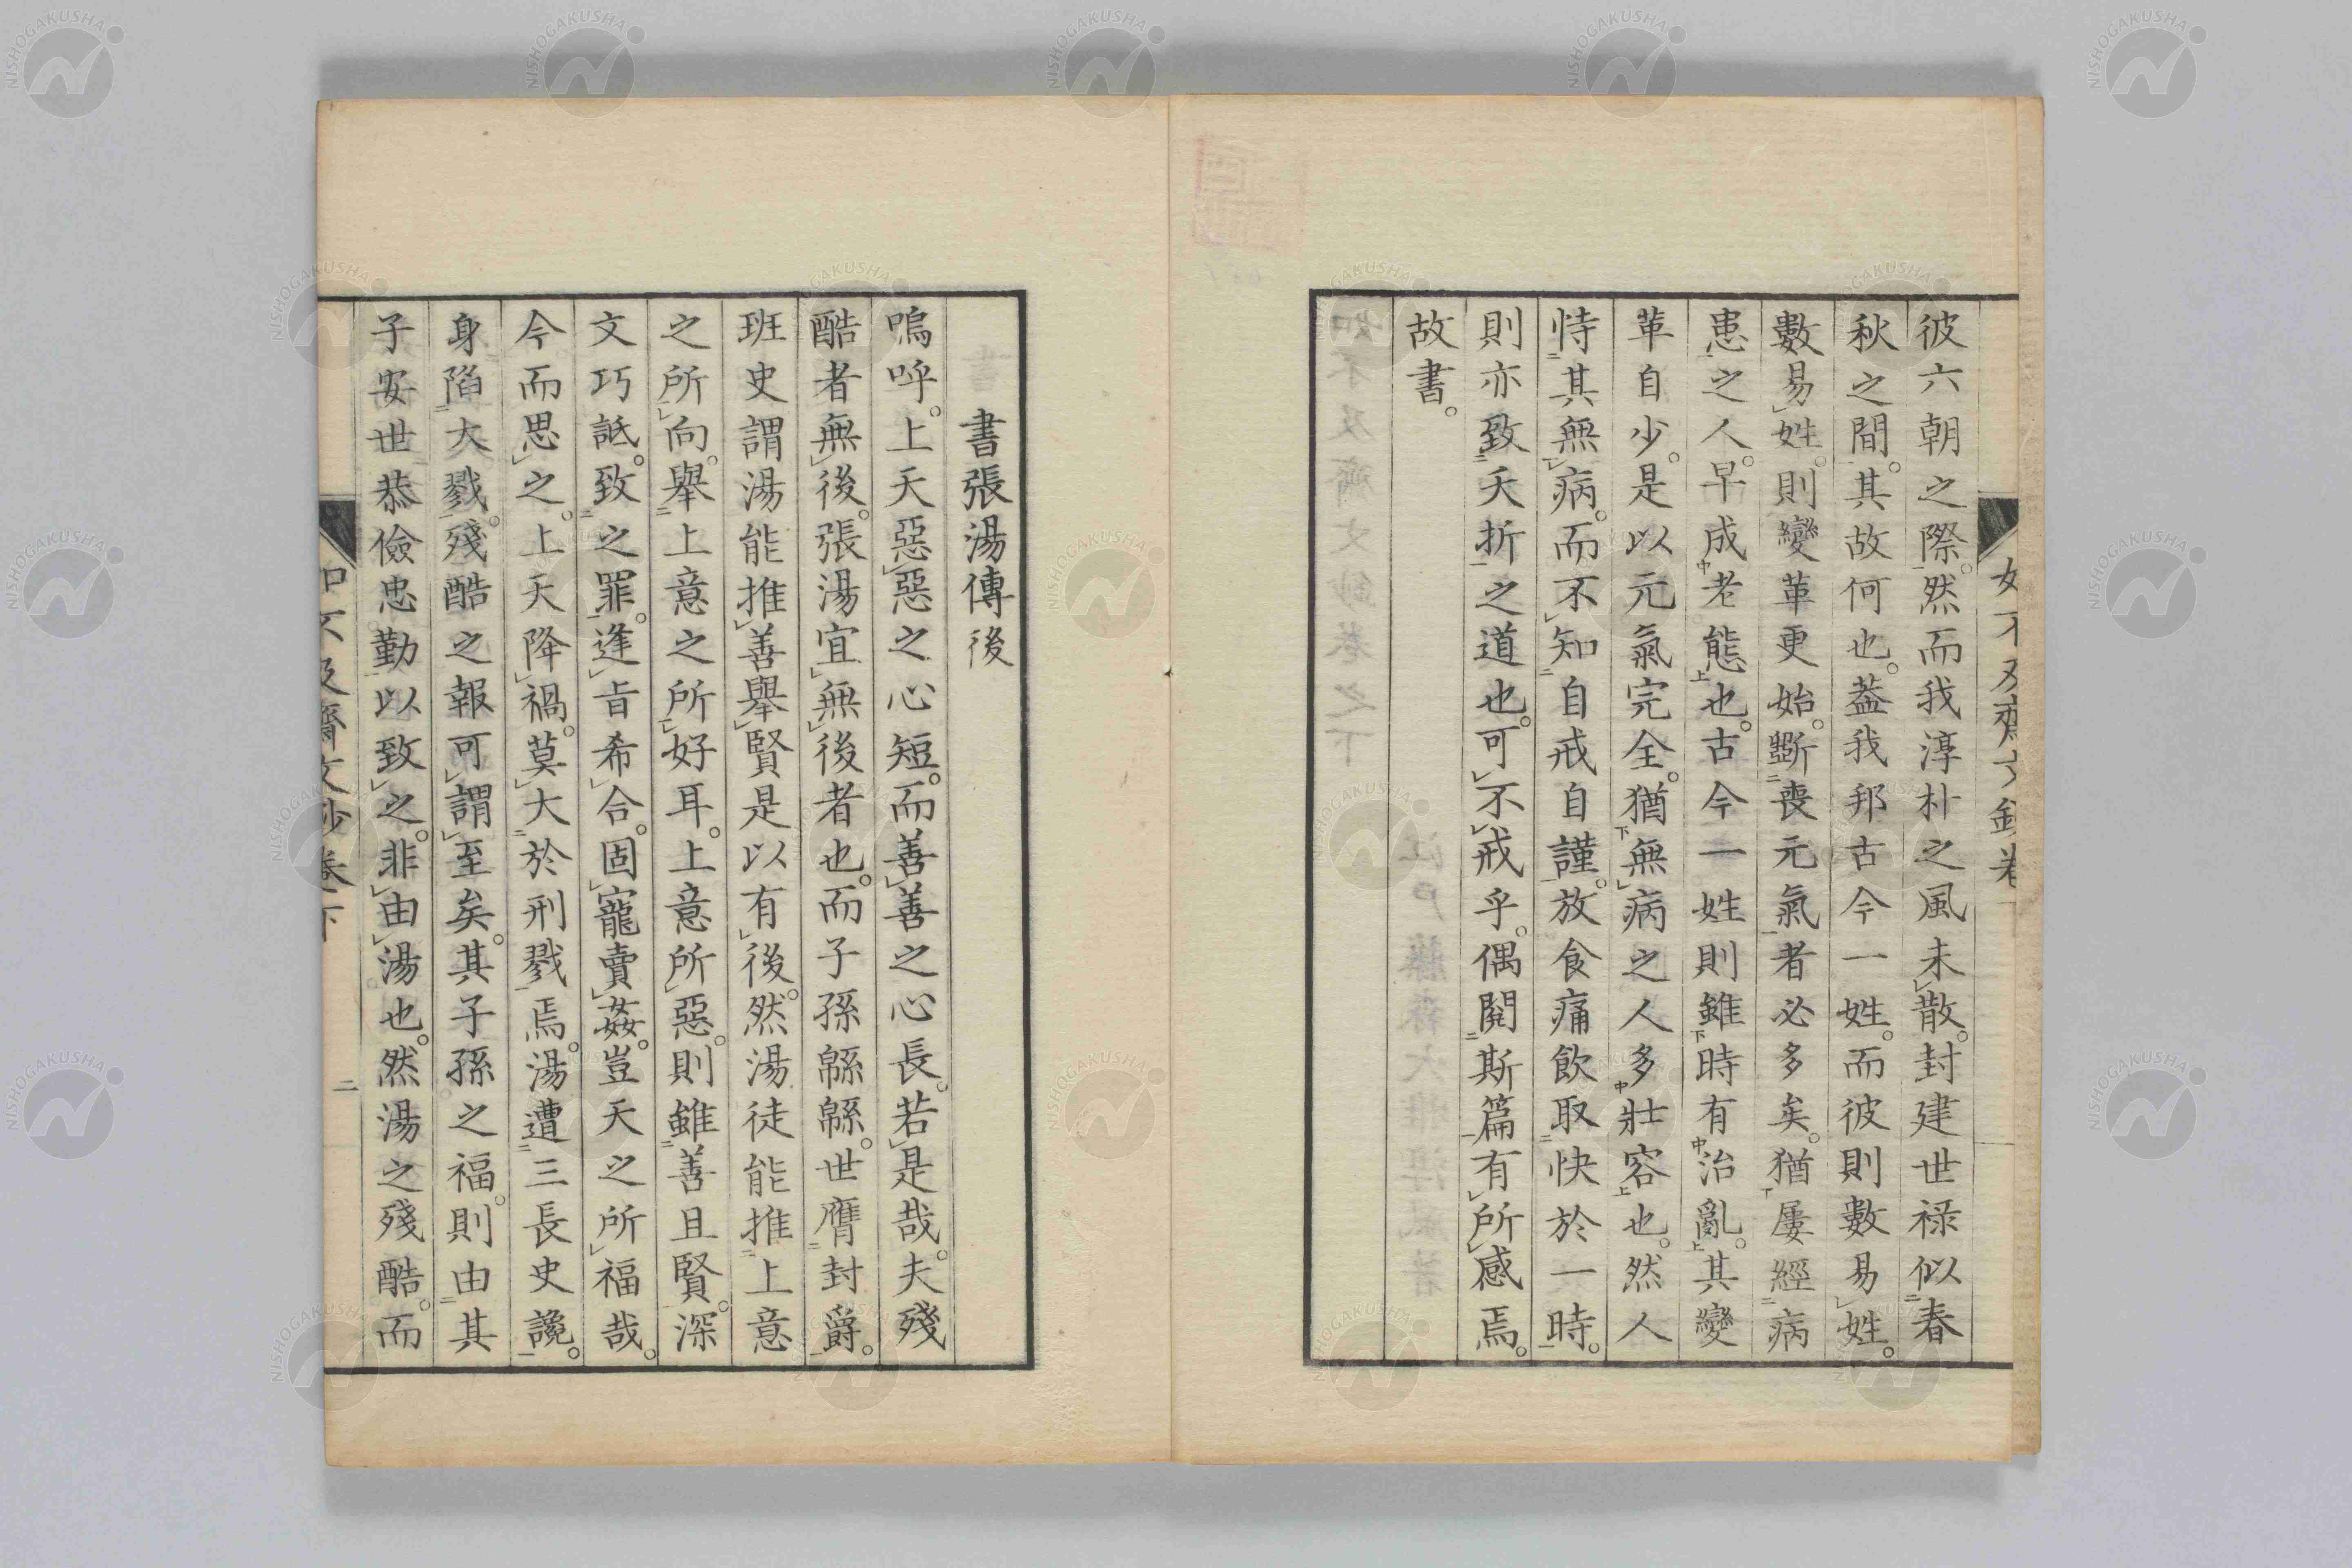 彼六朝之際。然而我淳朴之風未散。封建世祿似春
秋之間。其故何也。蓋我邦古今一姓。而彼則數易姓。
數易姓。則變革更始。斲喪元氣者必多矣。猶屢經病
患之人。早成老態也。古今一姓則雖時有治亂。其變
革自少。是以元氣完全。猶無病之人多壯容也。然人
恃其無病。而不知自戒自謹。放食痛飲取快於一時。
則亦致夭折之道也。可不戒乎。偶閱斯篇有所感焉。
故書。
書張湯傳後
嗚呼。上天惡惡之心短。而善善之心長。若是哉。夫殘
酷者無後。張湯宜無後者也。而子孫緜緜。世膺封爵。
班史謂湯能推善舉賢是以有後。然湯徒能推上意
之所向。舉上意之所好耳。上意所惡。則雖善且賢。深
文巧詆。致之罪。逢旨希合。固寵賣姦。豈天之所福哉。
今而思之。上天降禍。莫大於刑戮焉。湯遭三長史讒。
身陷大戮。殘酷之報可謂至矣。其子孫之福。則由其
子安世恭儉忠勤以致之。非由湯也。然湯之殘酷。而
如不及齋文鈔卷下
二
NISHOGAKUSHA